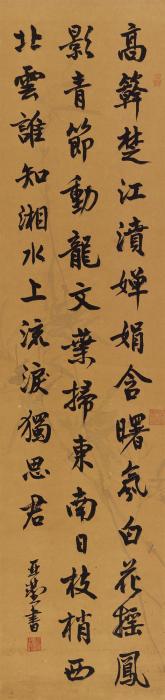 高簳楚江濆嬋娟含曙氛白花搖鳳
影青節動龍文葉掃東南日枝梢西
北雲誰知湘水上流淚獨思君
亞蘧書